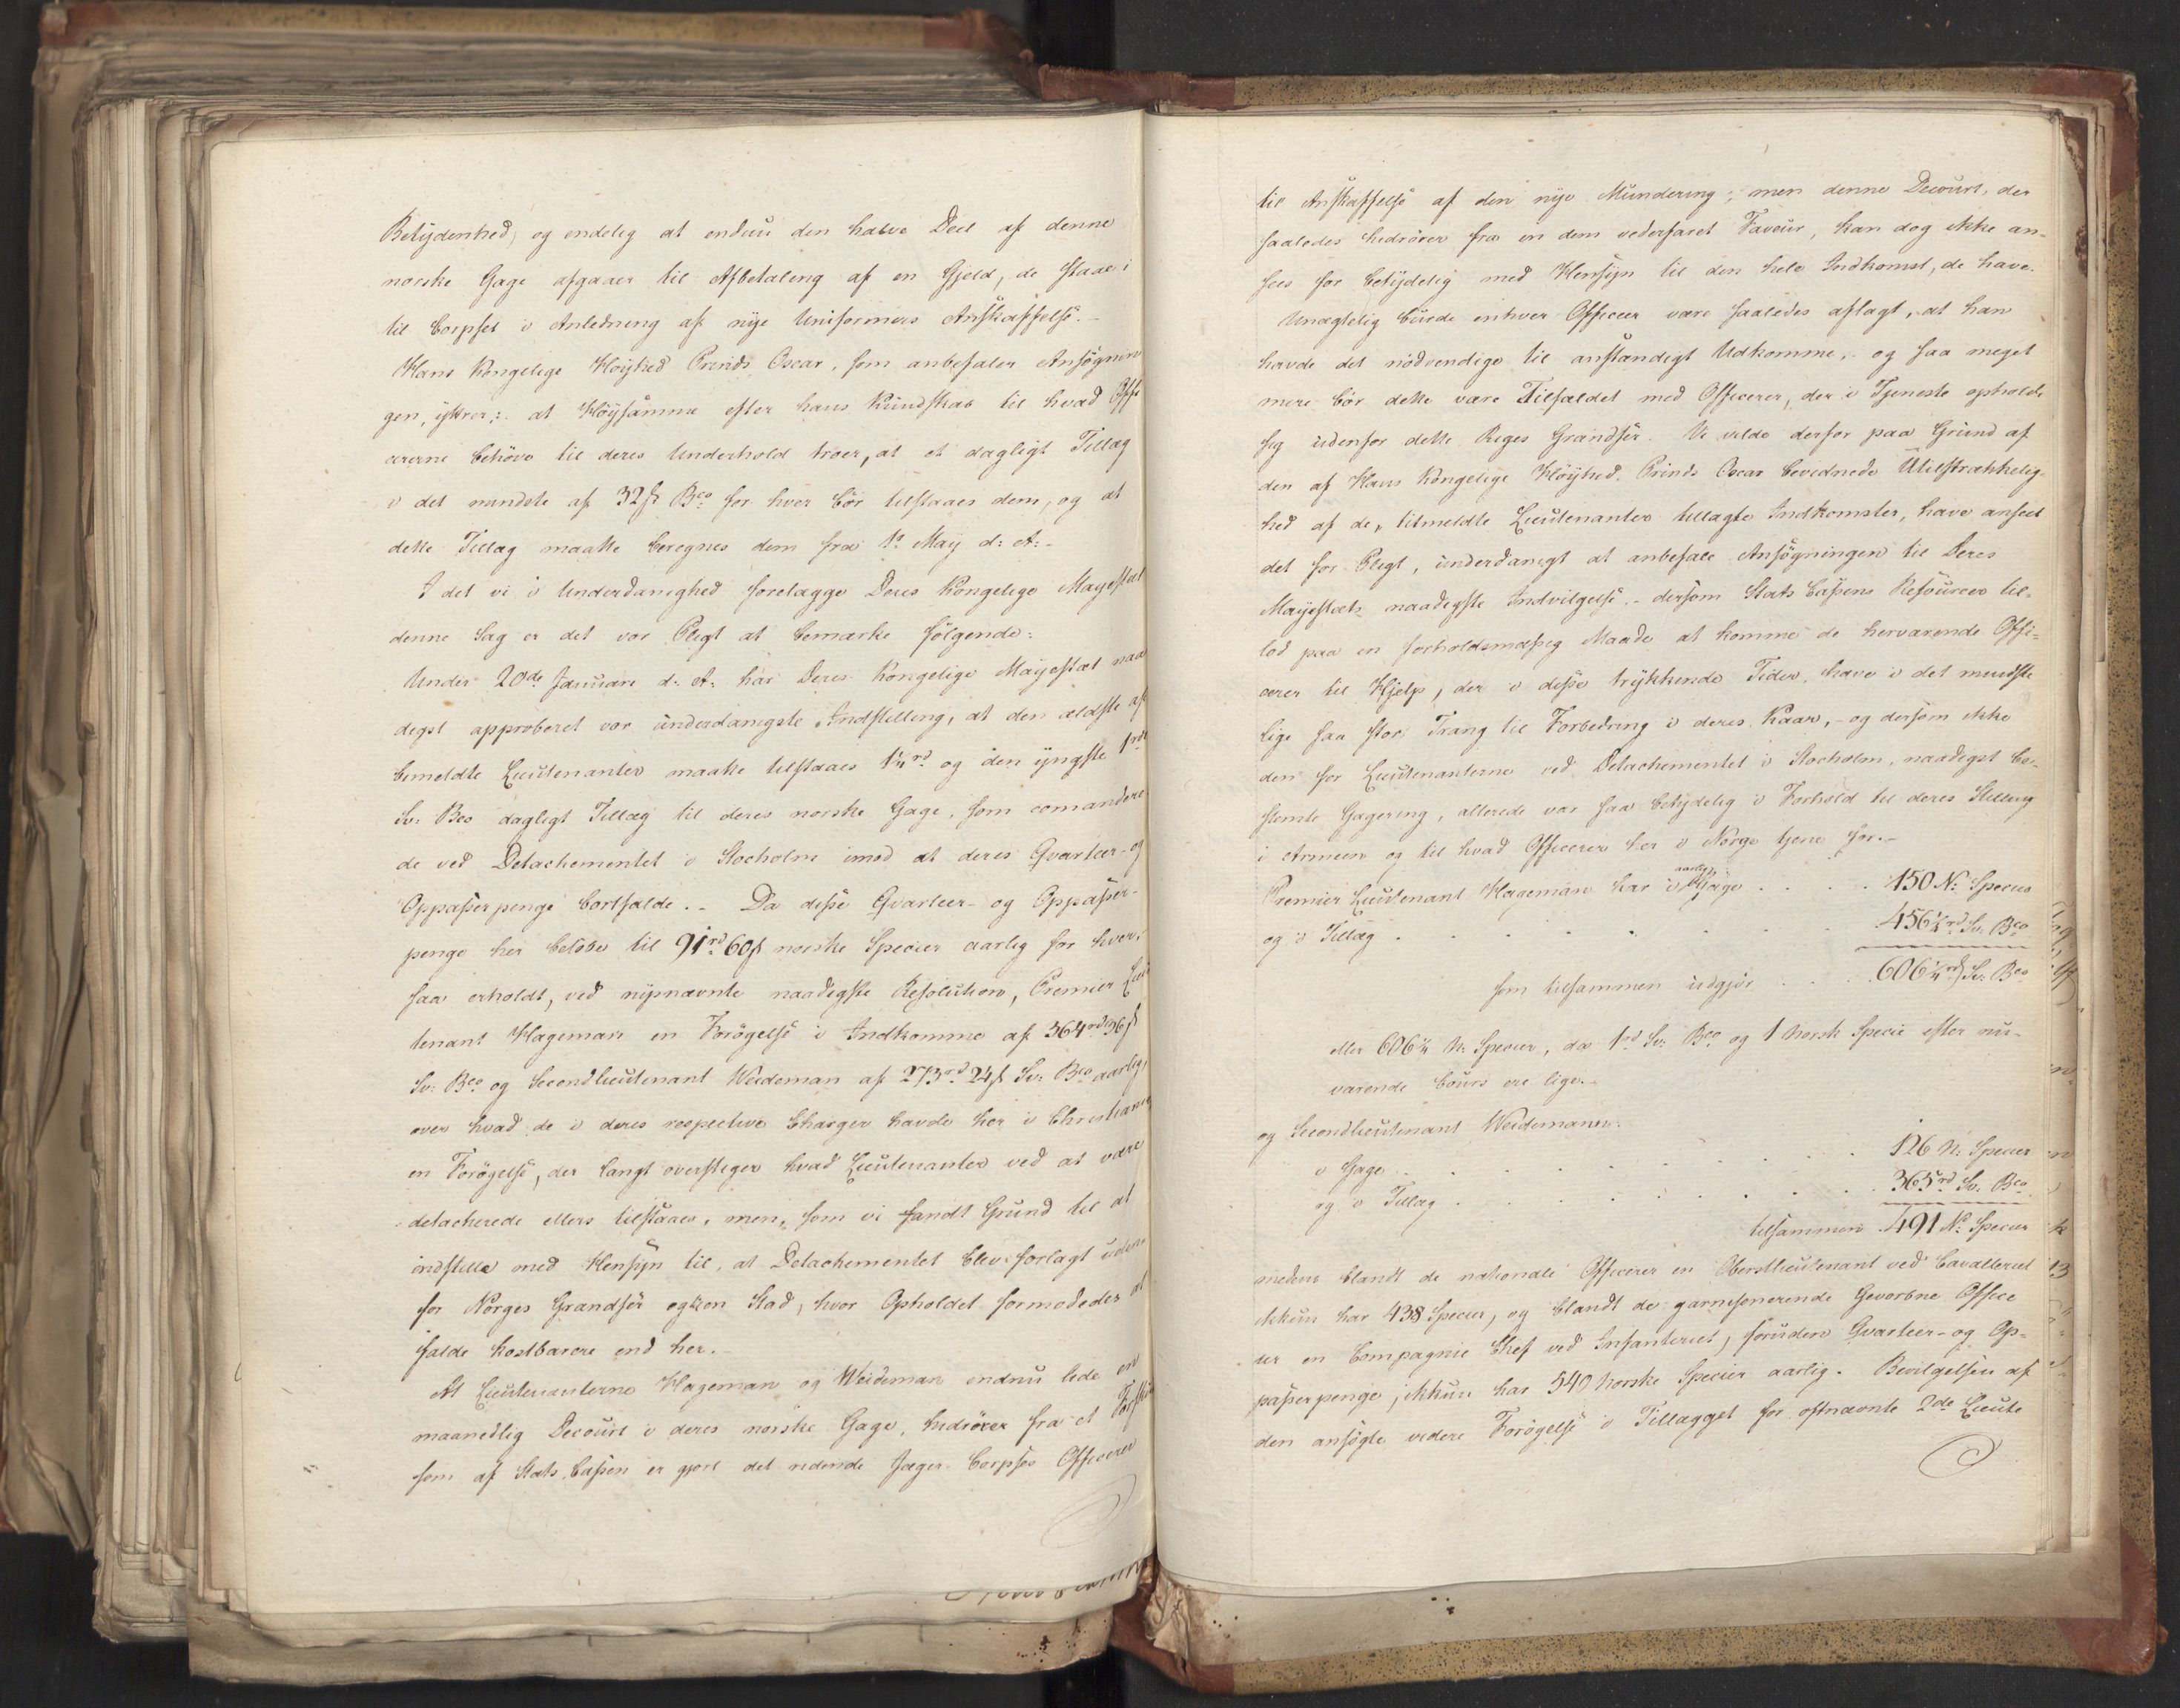 Betydenhed, og endelig at endnu den halve Deel af denne
norske Gage afgaaer til Afbetaling af en Gjeld, de staae i
til Corpset i Anledning af nye Uniformers Anskaffelse. –
Hans Kongelige Høyhed Prinds Oscar, som anbefaler Ansøgnin
gen, yttrer: at Høysamme efter hans Kundskab til hvad Offi
cererne behøve til deres Underhold troer, at et dagligt Tillæg
i det mindste af 32 s Bco for hver bør tilstaaes dem, og at
dette Tillæg maatte beregnes dem fra 1e May d: A: –
I det vi i Underdanighed forelægge Deres Kongelige Mayestæt
denne Sag er det vor Pligt at bemærke følgende:
Under 20de Januari d: A: har Deres Kongelige Mayestæt naa
digst approberet vor underdanigste Indstilling, at den ældste af
bemeldte Lieutenanter maatte tilstaaes 1¼ rd og den yngste 1 rd
Sv: Bco dagligt Tillæg til deres norske Gage, som comandere
de ved Detachementet i Stocholm imod at deres Qvarteer- og
Oppasserpenge bortfalde. – Da disse Qvarteer- og Oppasser-
penge her beløbe til 91 rd 60 s norske Specier aarlig for hver,
saa erholdt, ved nysnævnte naadigste Resolution, Premier Lieu
tenant Hageman en Forøgelse i Indkomme af 364 rd 36 s
Sv: Bco og Secondlieutenant Weideman af 273 rd 24 s Sv: Bco aarlig
over hvad de i deres respective Charger havde her i Christiania
en Forøgelse, der langt overstiger hvad Lieutenanter ved at være
detacherede ellers tilstaaes, men, som vi fandt Grund til at
indstille med Hensyn til, at Detachementet blev forlagt uden
for Norges Grændser og til en Stad, hvor Opholdet formodedes at
falde kostbarere end her. –
At Lieutenanterne Hageman og Weideman endnu lide en
maanedlig Decourt i deres norske Gage, hidrører fra et Forskud
som af Stats Cassen er gjort det ridende Jæger-Corpses Officerer
til Anskaffelse af den nye Mundering; men denne Decourt, der
saaledes hidrører fra en dem vederfaret Faveur, kan dog ikke an-
sees for betydelig med Hensyn til den hele Indkomst, de have.
Unægtelig burde enhver Officeer være saaledes aflagt, at han
havde det nødvendige til anstændigt Udkomme, og saa meget
mere bør dette være Tilfældet med Officerer, der i Tjeneste opholde
sig udenfor dette Riges Grændser. Vi vilde derfor paa Grund af
den af Hans Kongelige Høyhed Prinds Oscar bevidnede Utilstrækkelig-
hed af de, titmeldte Lieutenanter tillagte Indkomster, have anseet
det for Pligt, underdanigt at anbefale Ansøgningen til Deres
Mayestæts naadigste Indvilgelse, – dersom Stats Cassens Resourcer til-
lod paa en forholdsmæssig Maade at komme de herværende Offi-
cerer til Hjelp, der i disse trykkende Tider, have i det mindste
lige saa stor Trang til Forbedring i deres Kaar, – og dersom ikke
den for Lieutenanterne ved Detachementet i Stocholm, naadigst be-
stemte Gagering, allerede var saa betydelig i Forhold til deres Stilling
i Armeen og til hvad Officerer her i Norge tjene for. –
Premier Lieutenant Hageman har i aarlig Gage . . . . 150 N: Specier
og i Tillæg . . . . . . . 456¼ rd Sv: Bco
som tilsammen udgjør . . . 606¼ rd Sv: Bco
eller 606¼ N: Specier, da 1 rd Sv: Bco og 1 norsk Specie efter nu-
værende Cours ere lige. –
og Secondlieutenant Weidemann:
i Gage . . . . . . . . 126 N: Specier
og i Tillæg . . . . . . . 365 rd Sv: Bco
tilsammen . 491 N: Specier
medens blandt de nationale Officerer en Oberstlieutenant ved Cavalleriet
ikkun har 438 Specier, og blandt de garnisonerende Gevorbne Office
rer en Compagnie Chef ved Infanteriet, foruden Qvarteer- og Op-
passerpenge, ikkun har 540 norske Specier aarlig. Bevilgelsen af
den ansøgte videre Forøgelse i Tillægget for oftnævnte 2de Lieute